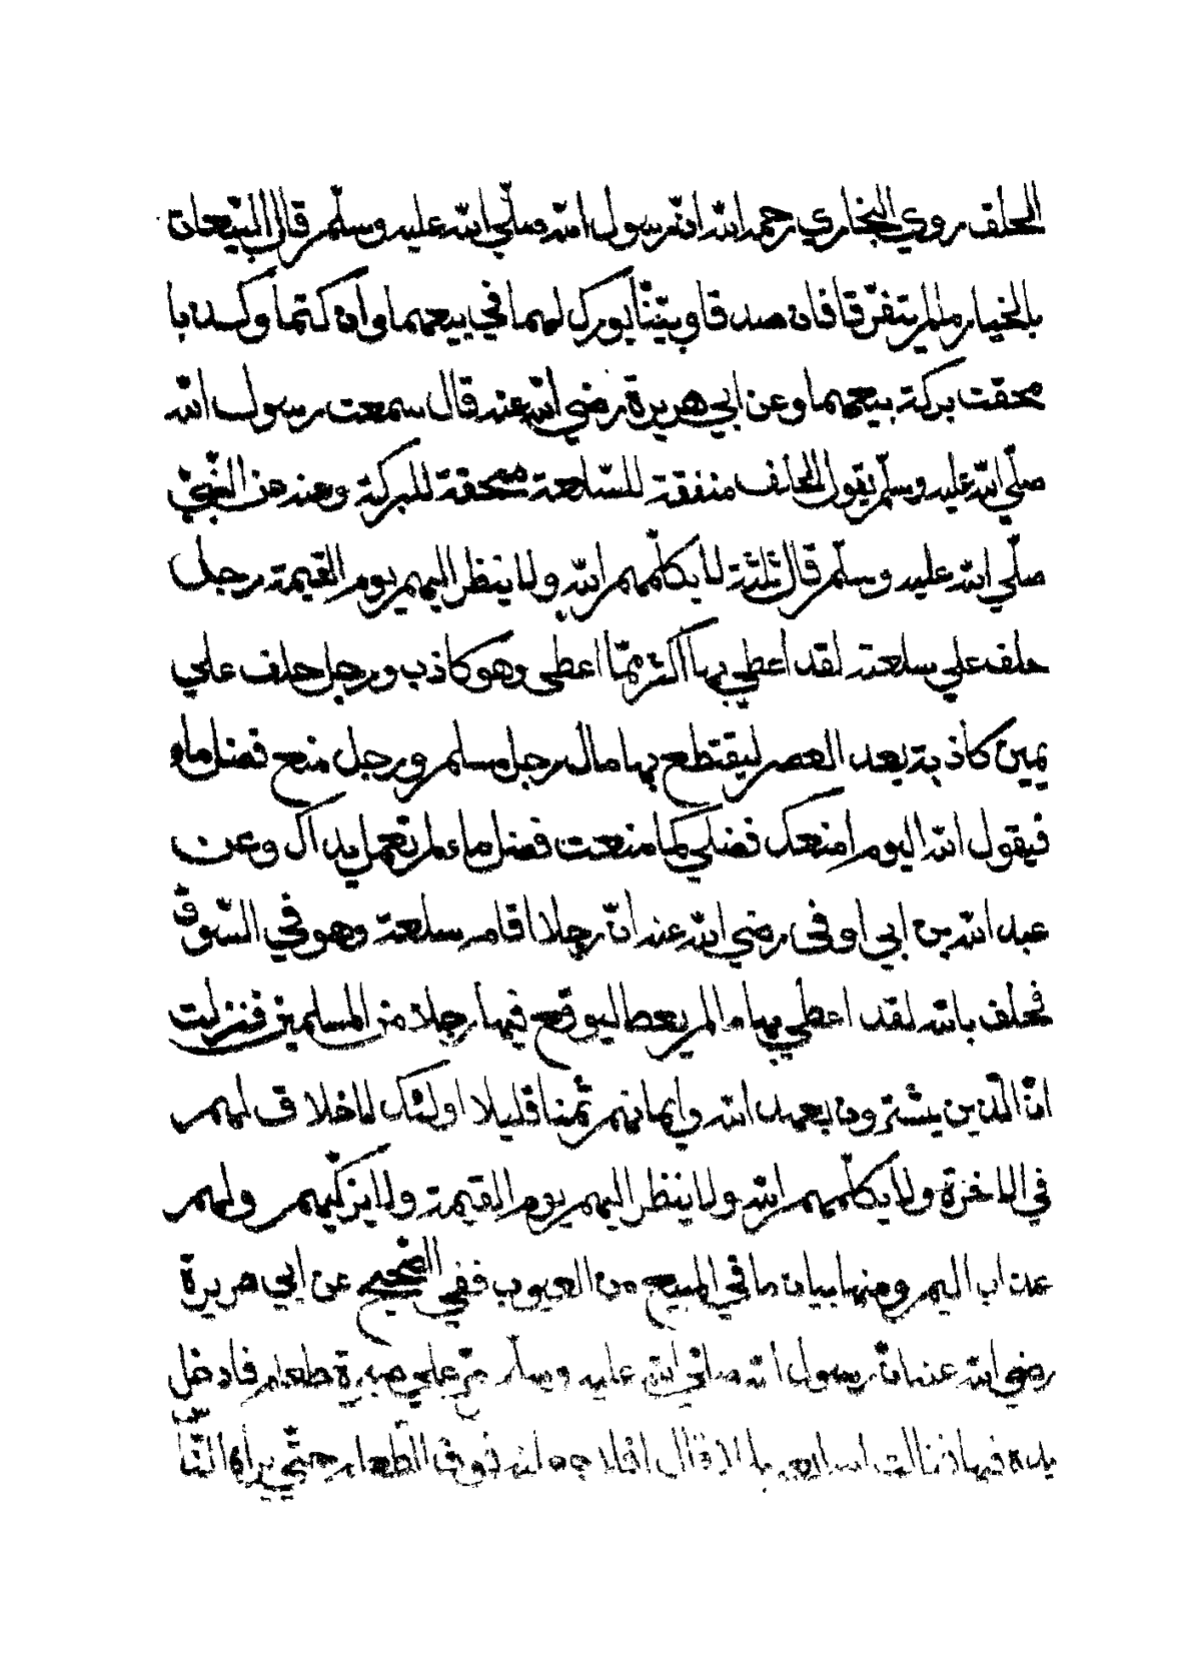 الحلف روي البخاري رحمه الله انّ رسول الله صلّي الله عليه وسلّم قال البيّعان
بالخيار مالم يتفرّقا فان صدقا وبيّنا بورك لهما في بيعهما وان كتما وكذبا
محقت بركة بيعهما وعن ابي هريرة رضي الله عنه قال سمعت رسول الله
صلّي الله عليه وسلّم يقول الحلف منفقة للسّلعة ممحقة للبركة وعنه عن النّبيّ
صلّي الله عليه وسلّم قال ثلثة لا يكلّمهم الله ولا ينظر اليهم يوم القيمة رجل
حلف علي سلعته لقد اعطي بها اكثر ممّا اعطي وهو كاذب ورجل حلف علي
يمين كاذبة بعد العصر ليقتطع بها مال رجل مسلم ورجل منع فضل ماء
فيقول الله اليوم امنعك فضلي كما منعت فضل ماء لم تعمل يداك وعن
عبد الله بن ابي اوفى رضي الله عنه انّ رجلا اقام سلعة وهو في السّوق
فحلف بالله لقد اعطي بها مالم يعط ليوقع فيها رجلا من المسلمين فنزلت
انّ الّذين يشترون بعهد الله وايمانهم ثمنا قليلا اولئك لا خلاق لهم
في الاخرة ولا يكلّمهم الله ولا ينظر اليهم يوم القيمة ولا يزكّيهم ولهم
عذاب اليم ومنها بيان ما في المبيع من العيوب ففي الصّحيح عن ابي هريرة
رضي الله عنه انّ رسول الله صلّي الله عليه وسلّم مرّ علي صبرة طعام فادخل
يده فيها فنالت اصابعه بللا قال افلا جعلته فوق الطّعام حتّي يراه النّاس